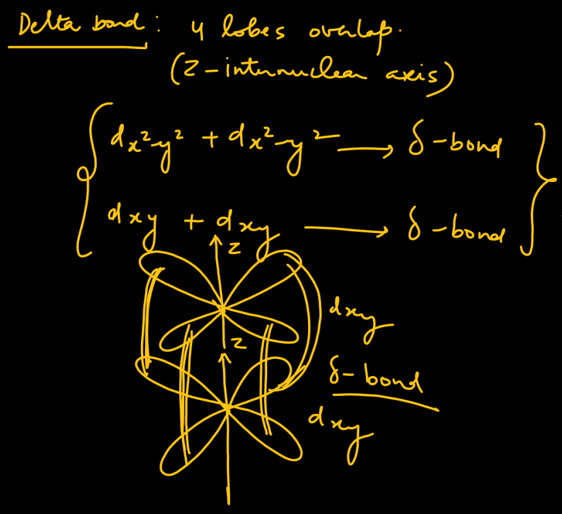 Delta bond : 4 lobes overlap.
(Z-internuclear axis)
dx²-y² + dx²-y² → δ-bond
dxy + dxy → δ-bond
Z
dxy
Z
δ-bond
dxy